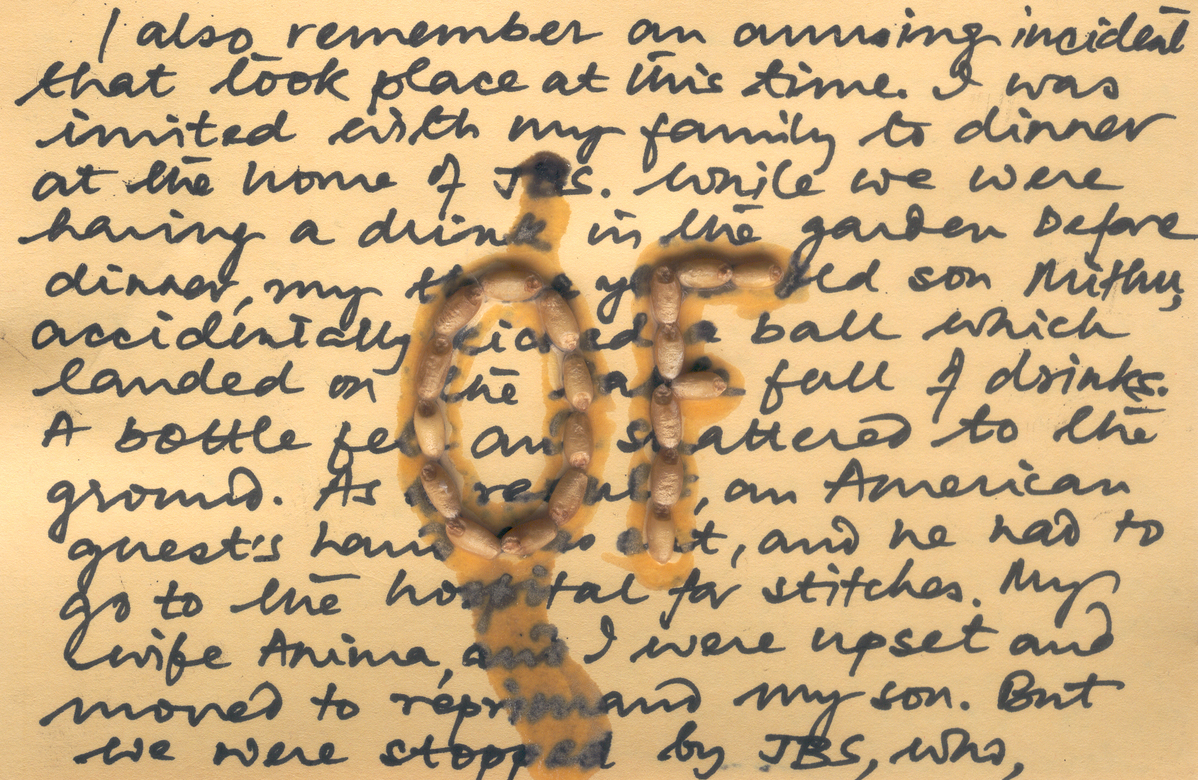 I also remember an amusing incident
that took place at this time. I was
invited with my family to dinner
at the home of JBS. While we were
having a drink in the garden before
dinner, my old son Mithu,
accidentally kicked a ball which
landed on the full of drinks.
A bottle fell and shattered to the
ground. As a result, an American
guest's hand was cut, and he had to
go to the hospital for stitches. My
wife Anima, and I were upset and
moved to reprimand my son. But
we were stopped by JBS, who,
OF